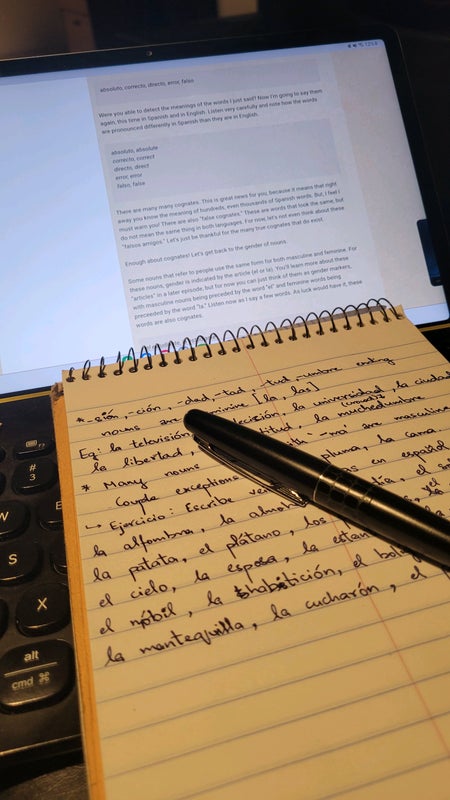 12%
absoluto, correcto, directo, error, falso
Were you able to detect the meanings of the words I just said? Now I'm going to say them
again, this time in Spanish and in English. Listen very carefully and note how the words
are pronounced differently in Spanish than they are in English.
absoluto, absolute
correcto, correct
directo, direct
error, error
falso, false
There are many many cognates. This is great news for you, because it means that right
away you know the meaning of hundreds, even thousands of Spanish words. But, I feel I
must warn you! There are also "false cognates." These are words that look the same, but
do not mean the same thing in both languages. For now, let's not even think about these
"falsos amigos." Let's just be thankful for the many true cognates that do exist.
Enough about cognates! Let's get back to the gender of nouns.
Some nouns that refer to people use the same form for both masculine and feminine. For
these nouns, gender is indicated by the article (el or la). You'll learn more about these
"articles" in a later episode, but for now you can just think of them as gender markers,
with masculine nouns being preceded by the word "el" and feminine words being
preceeded by the word "la." Listen now as I say a few words. As luck would have it, these
words are also cognates.
* -sión, -ción, -dad, -tad, -tud, -umbre ending
nouns are feminine [la, las]
Eg: la televisión, decisión, la universidad, la ciudad
la libertad, titud, la muchedumbre (crowd)
* Many nouns '-ma' are masculine
Couple exceptions pluma, la cama
↳ Ejercicio: Escribe en español
la alfombra, la día, el
la patata, el plátano, los
el cielo, la esposa, la
el móbil, la habitición, el
la mantequilla, la cucharón, el
# 3
W
E
S
X
alt
cmd ⌘